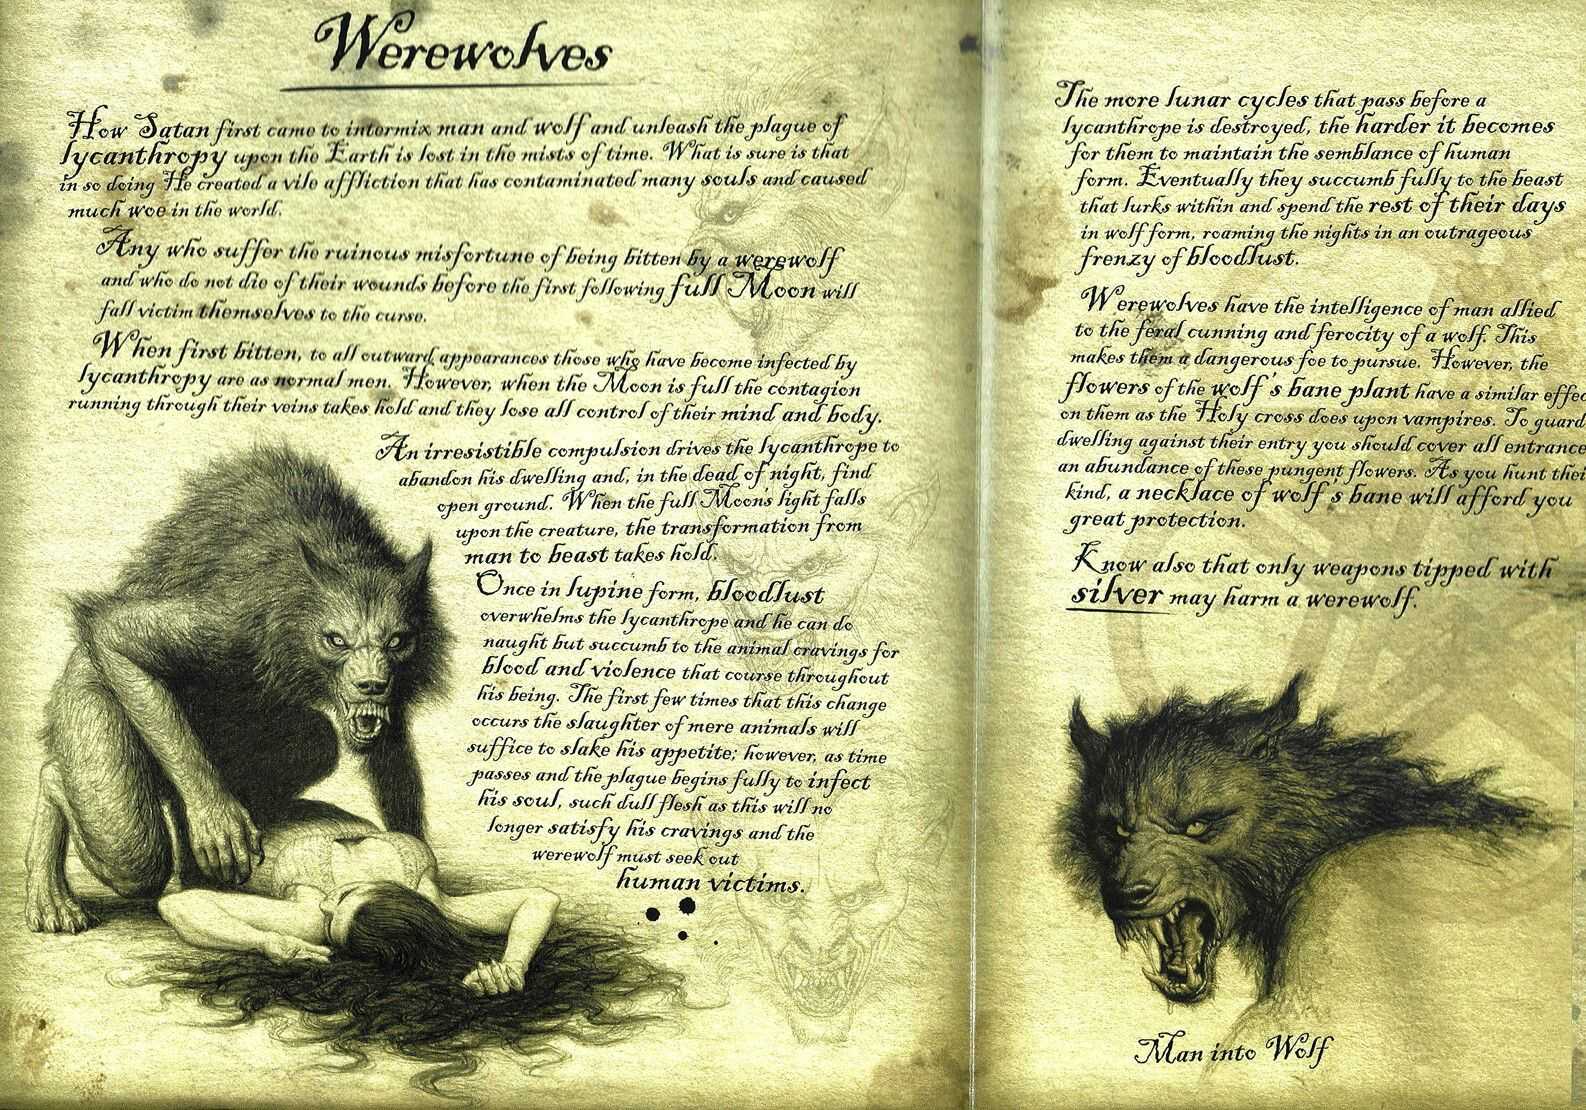 Werewolves
How Satan first came to intermix man and wolf and unleash the plague of
lycanthropy upon the Earth is lost in the mists of time. What is sure is that
in so doing He created a vile affliction that has contaminated many souls and caused
much woe in the world.
Any who suffer the ruinous misfortune of being bitten by a werewolf
and who do not die of their wounds before the first following full Moon will
fall victim themselves to the curse.
When first bitten, to all outward appearances those who have become infected by
lycanthropy are as normal men. However, when the Moon is full the contagion
running through their veins takes hold and they lose all control of their mind and body.
An irresistible compulsion drives the lycanthrope to
abandon his dwelling and, in the dead of night, find
open ground. When the full Moon's light falls
upon the creature, the transformation from
man to beast takes hold.
Once in lupine form, bloodlust
overwhelms the lycanthrope and he can do
naught but succumb to the animal cravings for
blood and violence that course throughout
his being. The first few times that this change
occurs the slaughter of mere animals will
suffice to slake his appetite; however, as time
passes and the plague begins fully to infect
his soul, such dull flesh as this will no
longer satisfy his cravings and the
werewolf must seek out
human victims.
The more lunar cycles that pass before a
lycanthrope is destroyed, the harder it becomes
for them to maintain the semblance of human
form. Eventually they succumb fully to the beast
that lurks within and spend the rest of their days
in wolf form, roaming the nights in an outrageous
frenzy of bloodlust.
Werewolves have the intelligence of man allied
to the feral cunning and ferocity of a wolf. This
makes them a dangerous foe to pursue. However, the
flowers of the wolf's bane plant have a similar effec
on them as the Holy cross does upon vampires. To guard
dwelling against their entry you should cover all entrance
an abundance of these pungent flowers. As you hunt thei
kind, a necklace of wolf's bane will afford you
great protection.
Know also that only weapons tipped with
silver may harm a werewolf.
Man into Wolf